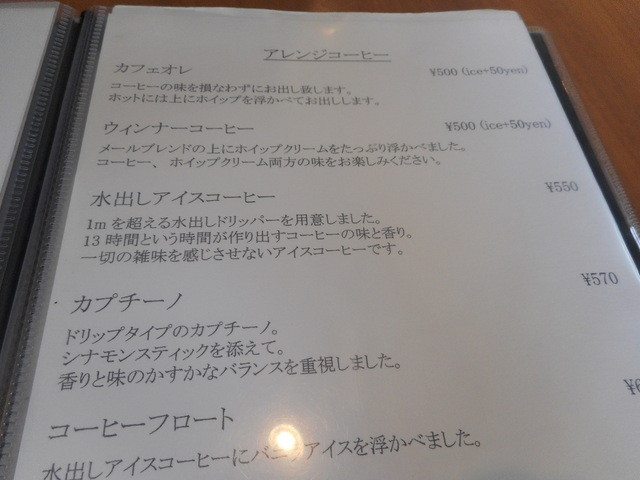 アレンジコーヒー
カフェオレ ¥500 (ice+50yen)
コーヒーの味を損なわずにお出し致します。
ホットには上にホイップを浮かべてお出しします。
ウィンナーコーヒー ¥500 (ice+50yen)
メールブレンドの上にホイップクリームをたっぷり浮かべました。
コーヒー、ホイップクリーム両方の味をお楽しみください。
水出しアイスコーヒー ¥550
1mを超える水出しドリッパーを用意しました。
13時間という時間が作り出すコーヒーの味と香り。
一切の雑味を感じさせないアイスコーヒーです。
カプチーノ ¥570
ドリップタイプのカプチーノ。
シナモンスティックを添えて。
香りと味のかすかなバランスを重視しました。
コーヒーフロート
水出しアイスコーヒーにバニラアイスを浮かべました。